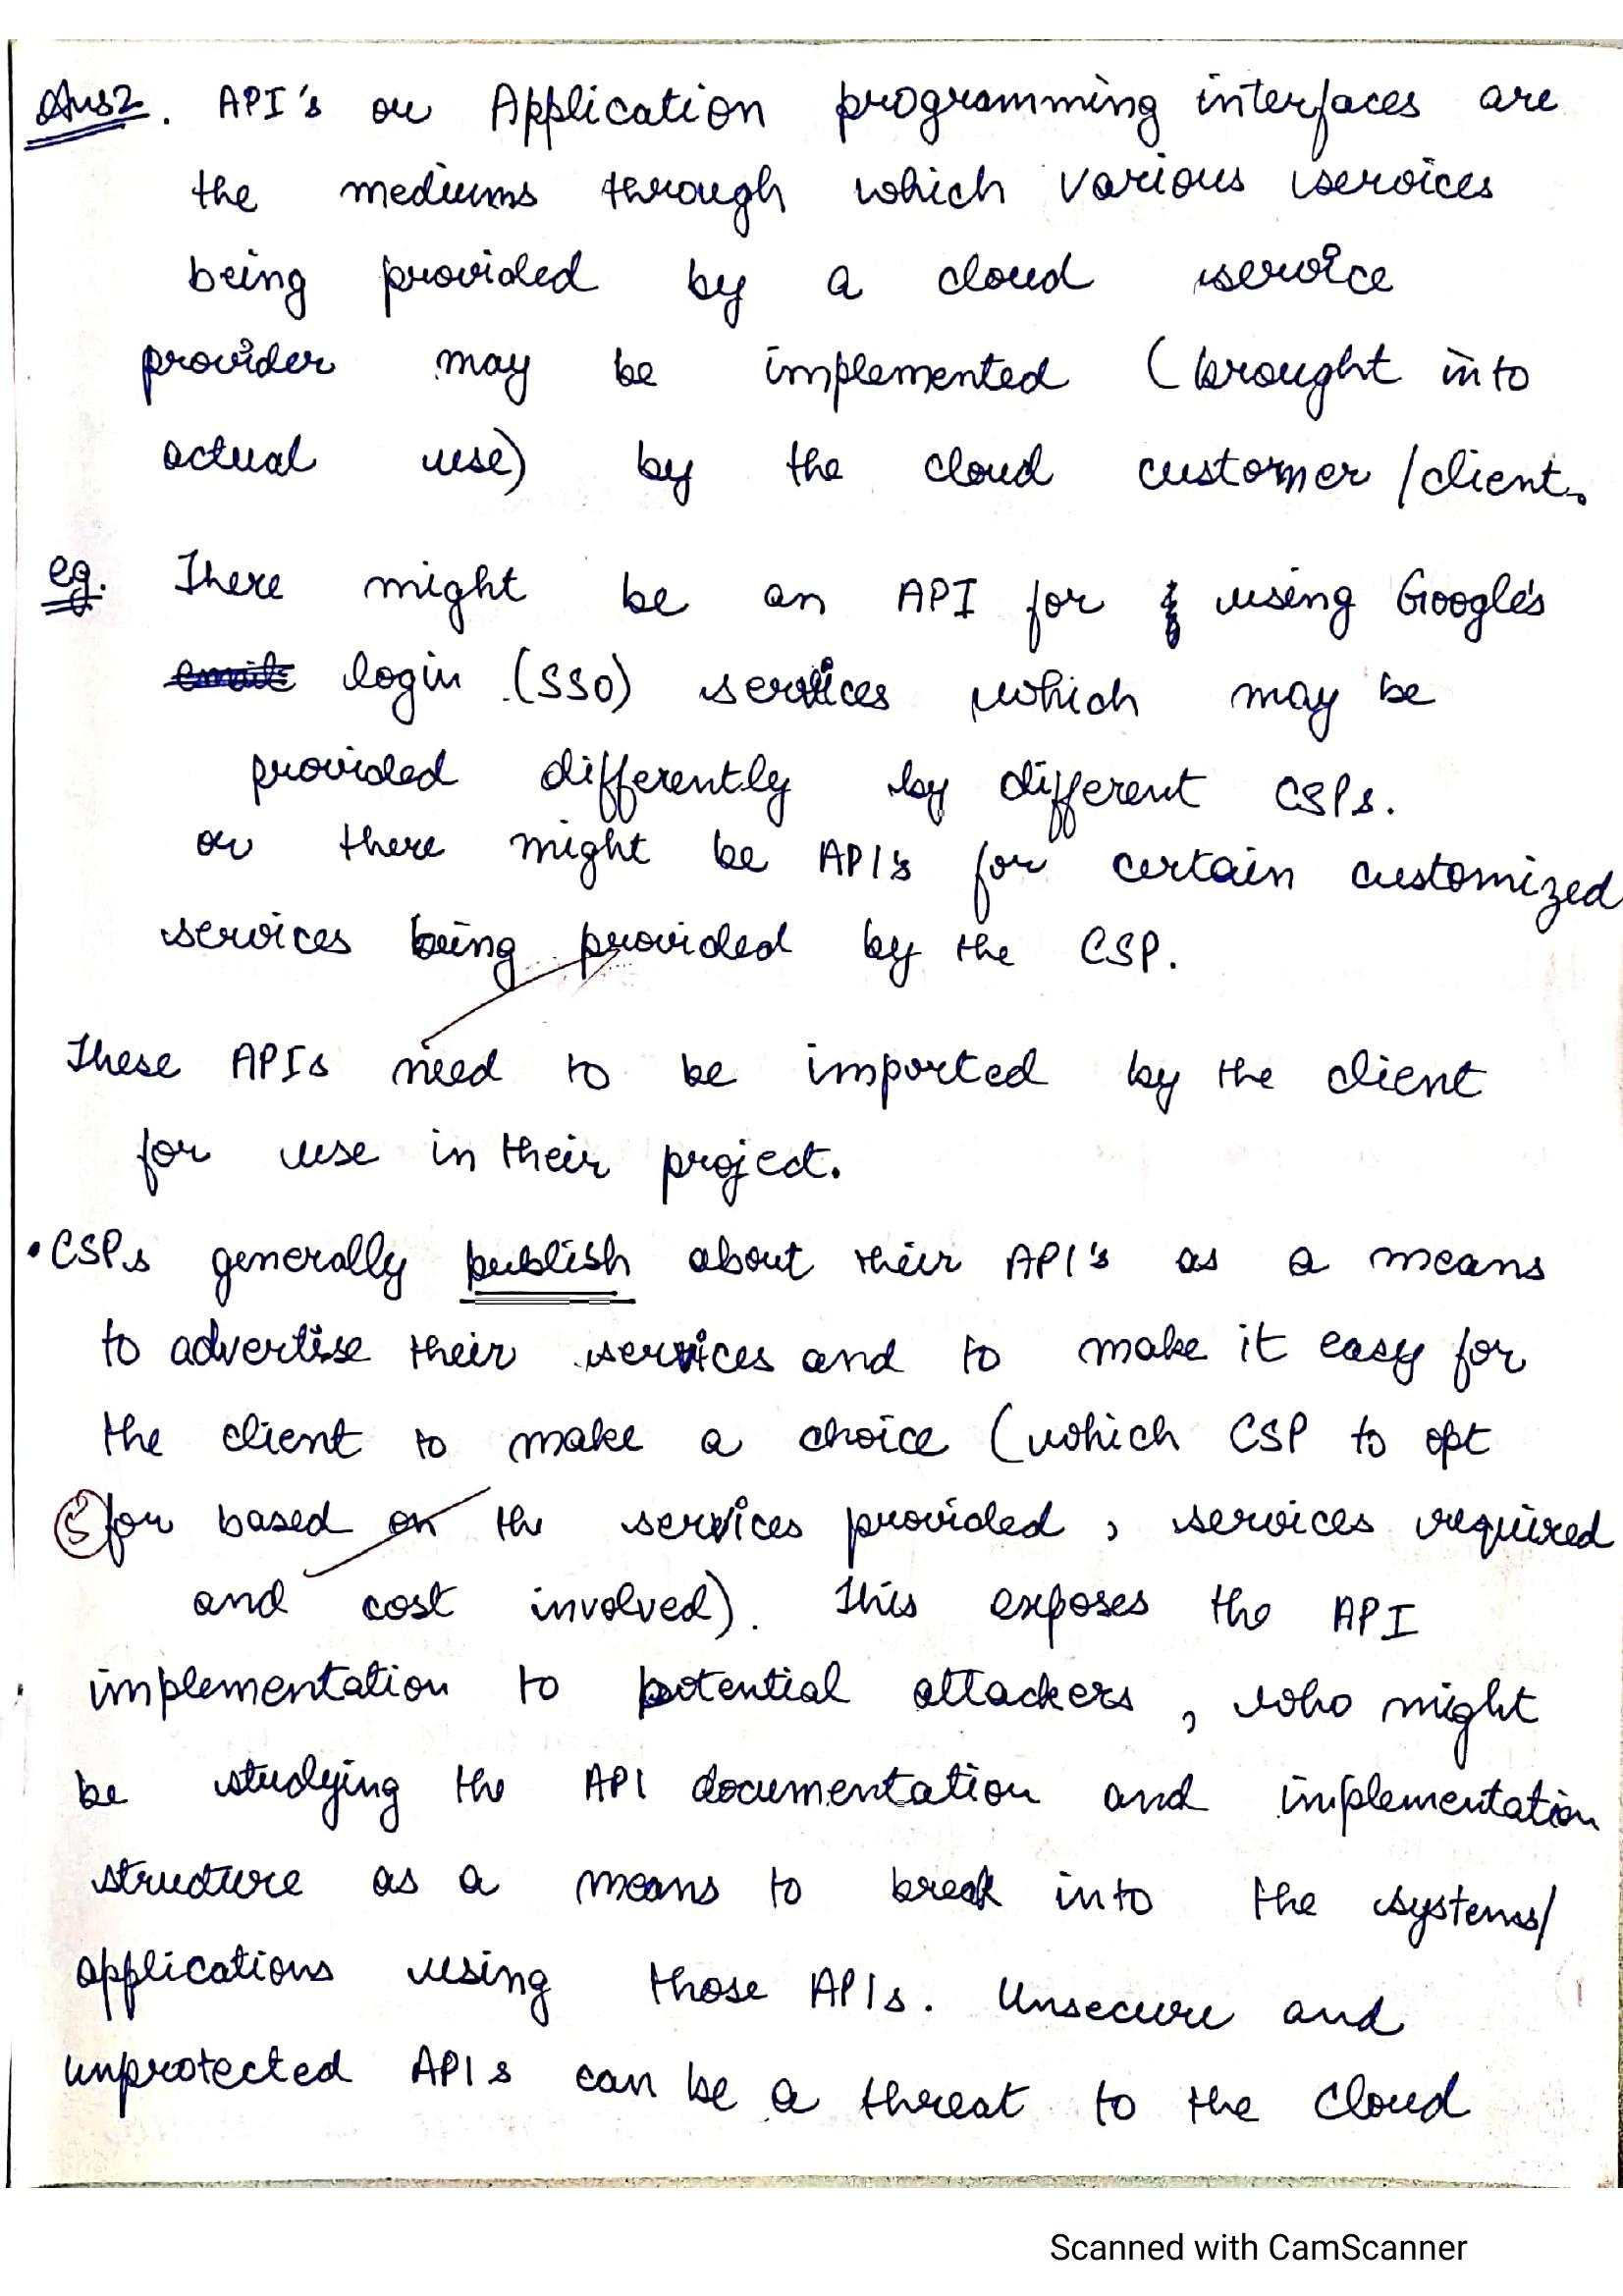 Ans2. API's or Application programming interfaces are
the mediums through which various services
being provided by a cloud service
provider may be implemented (brought into
actual use) by the cloud customer/client.
eg. There might be an API for using Google's
login (SSO) services which may be
provided differently by different CSPs.
or there might be API's for certain customized
services being provided by the CSP.
These APIs need to be imported by the client
for use in their project.
• CSPs generally publish about their API's as a means
to advertise their services and to make it easy for
the client to make a choice (which CSP to opt
for based on the services provided, services required
and cost involved). This exposes the API
implementation to potential attackers, who might
be studying the API documentation and implementation
structure as a means to break into the systems/
applications using those APIs. Unsecure and
unprotected APIs can be a threat to the cloud
Scanned with CamScanner